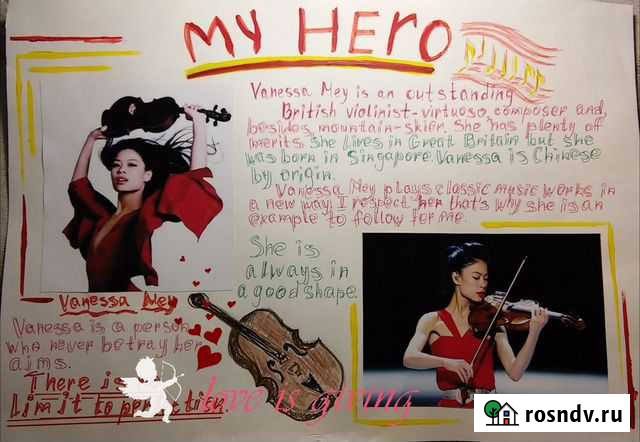 MY HERO
Vanessa Mey is an outstanding
British violinist-virtuoso, composer and,
besides mountain-skier. She has plenty of
merits. She lives in Great Britain but she
was born in Singapore. Vanessa is Chinese
by origin.
Vanessa Mey plays classic music works in
a new way. I respect her that's why she is an
example to follow for me.
She is
always in
a good shape.
Vanessa Mey
Vanessa is a person
who never betray her
aims.
There is
Limit to perfection
Love is giving
rosndv.ru